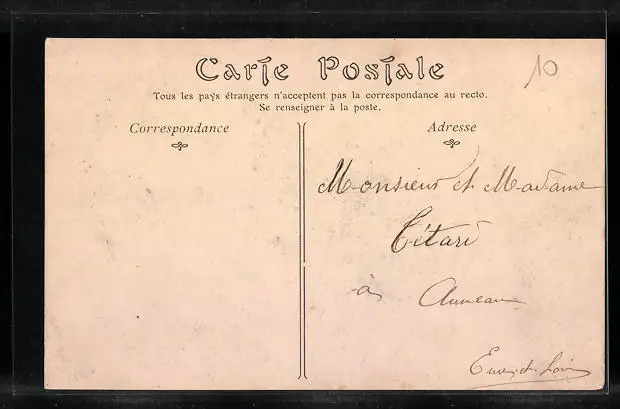 Carte Postale
10
Tous les pays étrangers n'acceptent pas la correspondance au recto.
Se renseigner à la poste.
Correspondance
Adresse
Monsieur et Madame
à Auneau
Eure-et-Loir